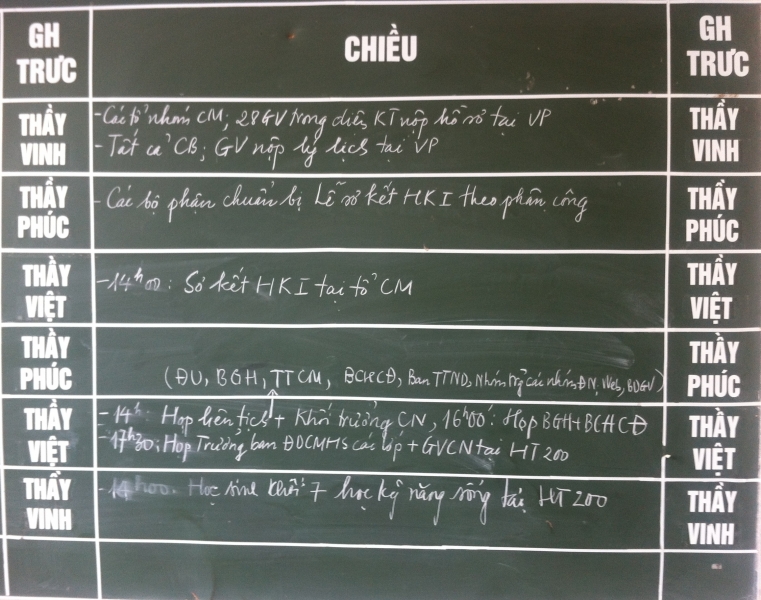 GH TRƯC CHIỀU GH TRƯC
THẦY VINH - Các tổ nhóm CM; 28 GV trong diện KT nộp hồ sơ tại VP THẦY VINH
- Tất cả CB; GV nộp lý lịch tại VP
THẦY PHÚC - Các bộ phận chuẩn bị Lễ sơ kết HKI theo phân công THẦY PHÚC
THẦY VIỆT - 14h00: Sơ kết HKI tại tổ CM THẦY VIỆT
THẦY PHÚC (ĐU, BGH, TTCM, BCHCĐ, Ban TTND, Nhóm trưởng các nhóm ĐN, Web, BDGV) THẦY PHÚC
THẦY VIỆT - 14h: Họp liên tịch + Khối trưởng CN, 16h00: Họp BGH + BCHCĐ THẦY VIỆT
- 17h30: Họp Trưởng ban ĐDCMHS các lớp + GVCN tại HT 200
THẦY VINH - 14h00. Học sinh khối 7 học kỹ năng sống tại HT 200 THẦY VINH